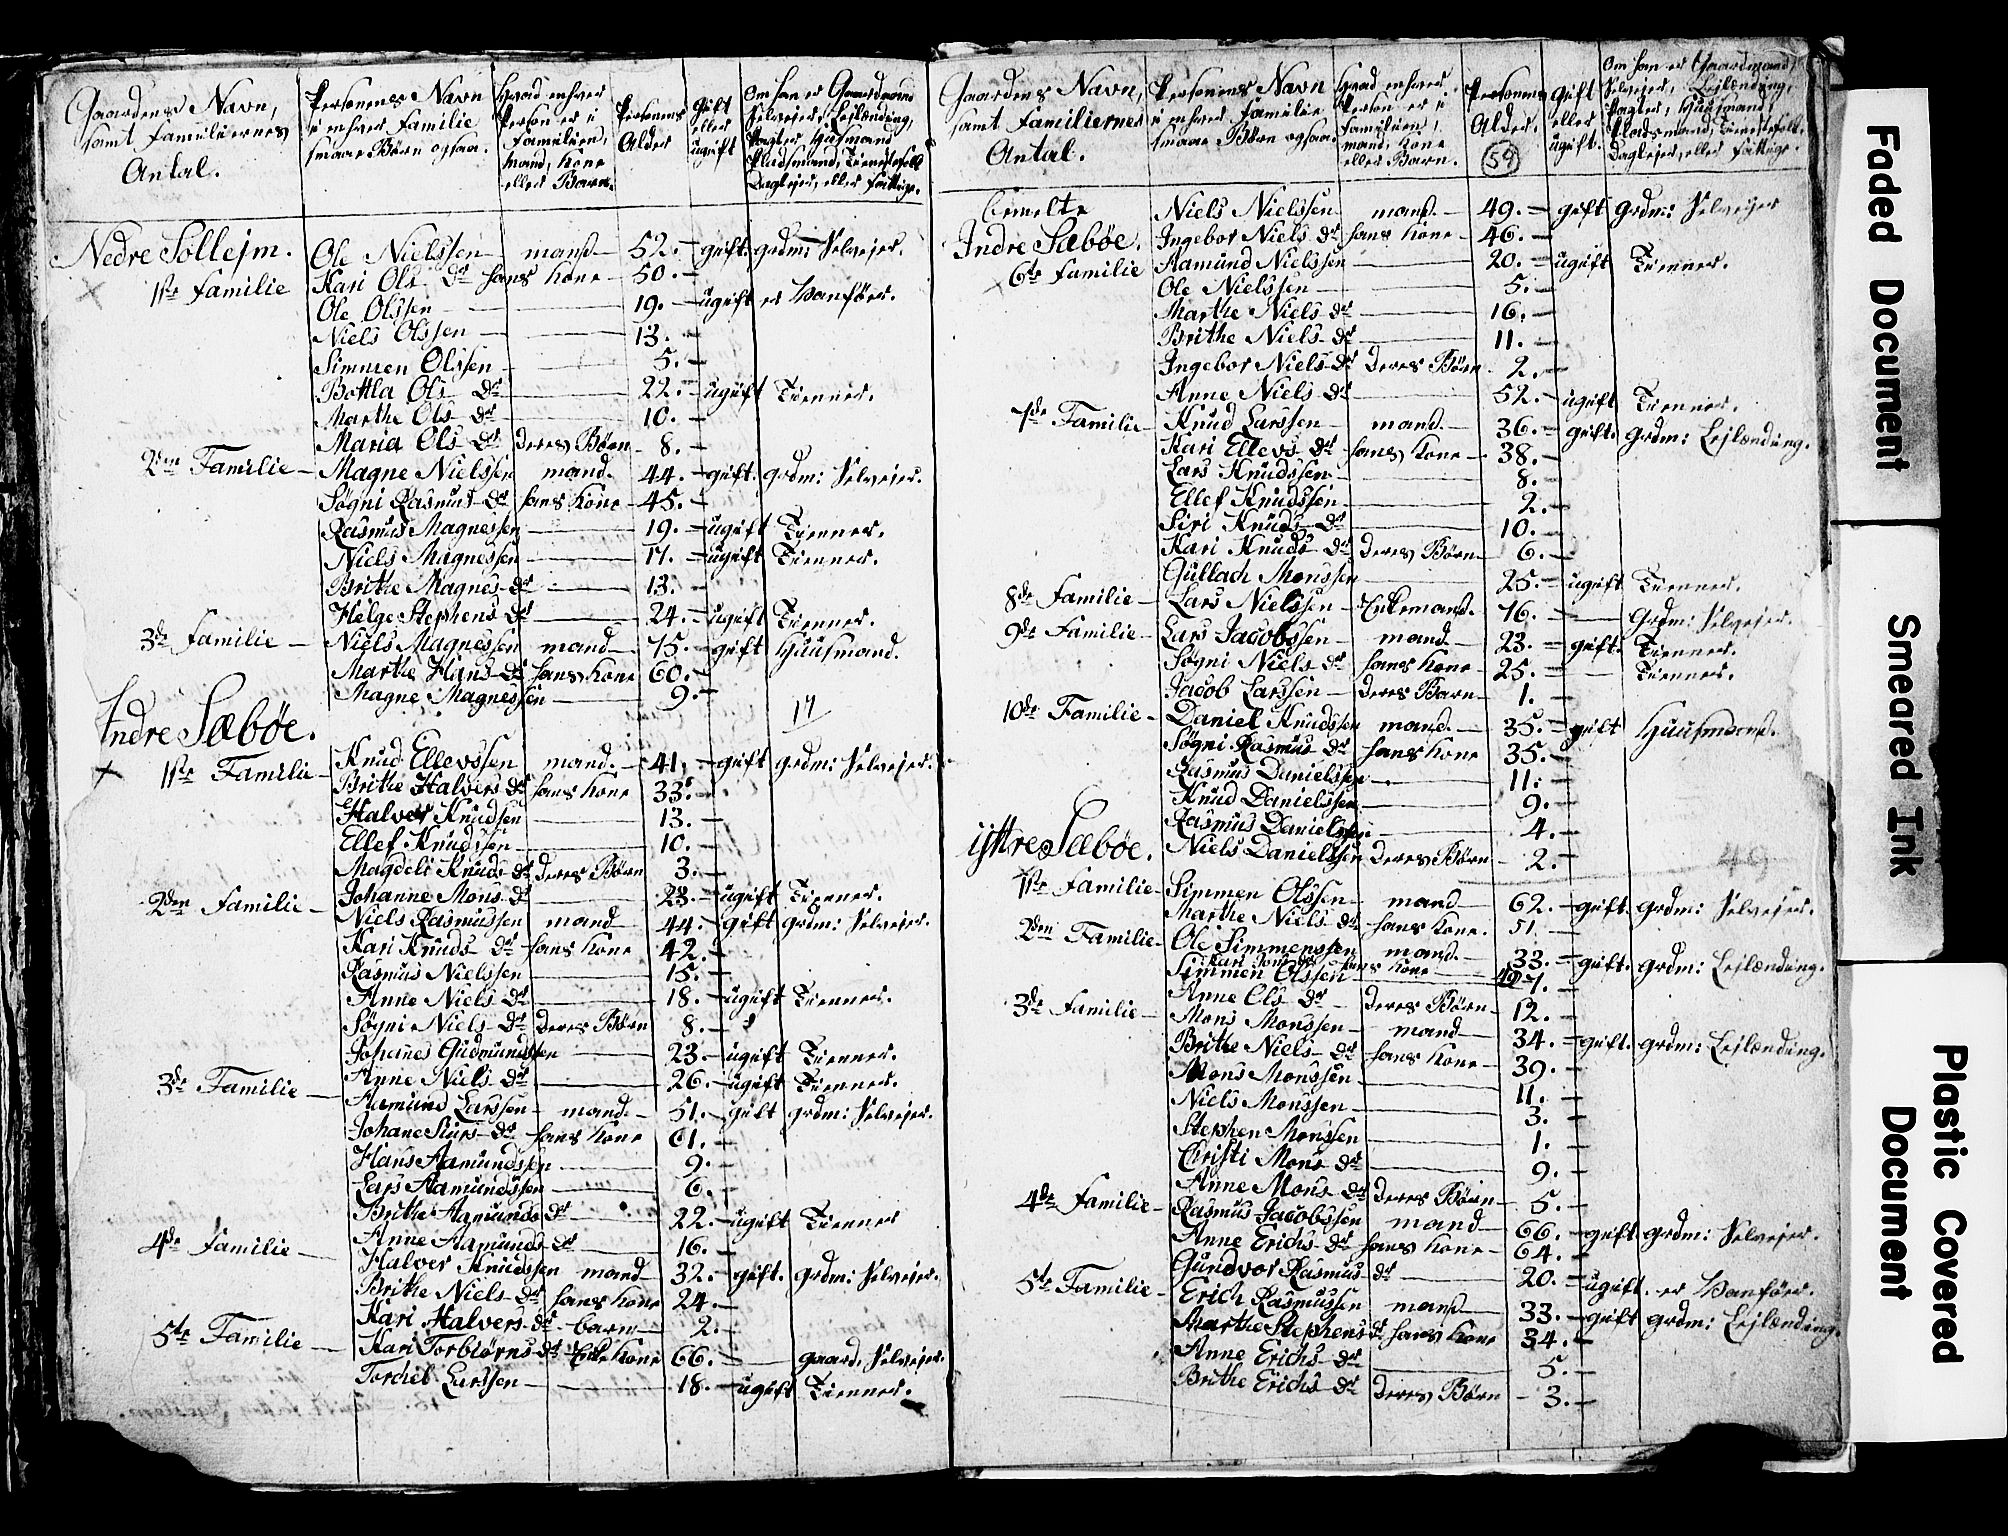 Gaardens Navn, samt Familiernes Antal.
Personens Navn i enhver Familie smaae Børn ogsaa.
Hvad enhver Person er i Familien, mand, Kone eller Barn.
Personens Alder
Gift eller ugift
Om han er Gaardmand Selvejer, Lejlænding, Pagter, Huusmand Pladsmand, Tienestefolk Daglejer, eller fattige.
Nedre Sollejm. Ole Nielssen mand 52. gift. grdm: Selvejer.
1ste Familie Kari Ols Dr hans Kone 50.
Ole Olssen 19. ugift er Vanføer.
Niels Olssen 13.
Simmen Olssen 5.
Bottla Ols Dr 22. ugift Tienner.
Marthe Ols Dr 10.
Maria Ols Dr Deres Børn 8.
2den Familie Magne Nielssen mand. 44. gift. grdm: Selvejer.
Søgni Rasmus Dr hans Kone 45.
Rasmus Magnessen 19. ugift Tienner.
Niels Magnessen 17. ugift Tienner.
Brithe Magnes Dr 13.
Helge Stephens Dr 24. ugift Tienner.
3de Familie Niels Magnessen mand 75. gift Huusmand.
Marthe Hans Dr hans Kone 60.
Magne Magnessen 9.
17
Indre Sæbøe.
1ste Familie Knud Ellevssen mand. 41. gift grdm: Selvejer.
Brithe Halvers Dr hans Kone 33.
Halver Knudsen 13.
Ellef Knudssen 10.
Magdeli Knuds Dr Deres Børn 3.
Johanne Mons Dr 23. ugift Tienner.
2den Familie Niels Rasmussen mand 44. gift grdm: Selvejer.
Kari Knuds Dr hans Kone 42.
Rasmus Nielssen 15.
Anne Niels Dr 18. ugift Tienner.
Søgni Niels Dr Deres Børn 8.
Johanes Gudmundssen 23. ugift Tienner.
Anne Niels Dr 26. ugift Tienner.
3de Familie Aamund Larssen mand. 51. gift grdm: Selvejer.
Johane Siurs Dr hans Kone 61.
Hans Aamundssen 9.
Lars Aamundssen 6.
Brithe Aamunds Dr 22. ugift Tienner
Anne Aamunds Dr 16.
4de Familie Halver Knudssen mand 32. gift. grdm: Selvejer.
Brithe Niels Dr hans Kone 24.
Kari Halvers Dr barn 2.
5te Familie Kari Torbiørns Dr Enke Kone 66. gaard, Selvejer.
Torchel Larssen 18. ugift Tienner.
Gaardens Navn, samt Familiernes Antal.
Personens Navn i enhver Familie smaae Børn ogsaa.
Hvad enhver Person er i Familien, mand, Kone eller Barn.
Personens Alder.
59
Gift eller ugift.
Om han er Gaardmand, Selvejer, Lejlænding, Pagter, Huusmand, Pladsmand, Tienestefolk. Daglejer, eller fattige.
bemelte Niels Nielssen mand. 49. gift grdm: Selvejer
Indre Sæbøe. Ingebor Niels Dr hans Kone 46.
6te Familie Aamund Nielssen 20. ugift Tienner.
Ole Nielssen 5.
Marthe Niels Dr 16.
Brithe Niels Dr 11.
Ingebor Niels Dr Deres Børn 2.
Anne Niels Dr 52. ugift Tienner.
7de Familie Knud Larssen mand. 36. gift. grdm: Lejlænding.
Kari Ellevs Dr hans Kone 38.
Lars Knudssen 8.
Ellef Knudssen 2.
Siri Knuds Dr 10.
Kari Knuds Dr Deres Børn 6.
Gullach Monssen 25. ugift Tienner.
8de Familie Lars Nielssen Enkemand. 76. Grdm: Selvejer.
9de Familie Lars Jacobssen mand 23. gift. Tienner.
Søgni Niels Dr hans Kone 25. Tienner.
Jacob Larssen Deres Barn 1.
10de Familie Daniel Knudssen mand. 35. gift Huusmand.
Søgni Rasmus Dr hans Kone 35.
Rasmus Danielssen 11.
Knud Danielssen 9.
Rasmus Danielssen 4.
ijttre Sæbøe. Niels Danielssen Deres Børn 2.
49
1ste Familie Simmen Olssen mand 62. gift. grdm: Selvejer.
Marthe Niels Dr hans Kone. 51.
2den Familie Ole Simmenssen mand. 33. gift. grdm: Lejlænding.
hans Kone
Simmen Olssen 7.
Anne Ols Dr Deres Børn 12.
3de Familie Mons Monssen mand 34. gift. grdm: Lejlænding.
Brithe Niels Dr hans Kone 39.
Mons Monssen 11.
Niels Monssen 3.
Stephen Monssen 1.
Christi Mons Dr 9.
Anne Mons Dr Deres Børn 5.
4de Familie Rasmus Jacobssen mand 66. gift grdm: Selvejer.
Anne Erichs Dr hans Kone 64.
Gundvor Rasmus Dr 20. ugift. er Vanføer.
5te Familie Erich Rasmussen mand 33. gift grdm: Lejlænding.
Marthe Stephens Dr hans Kone 34.
Anne Erichs Dr 5.
Brithe Erichs Dr Deres Børn 3.
Faded Document
Smeared Ink
Plastic Covered Document